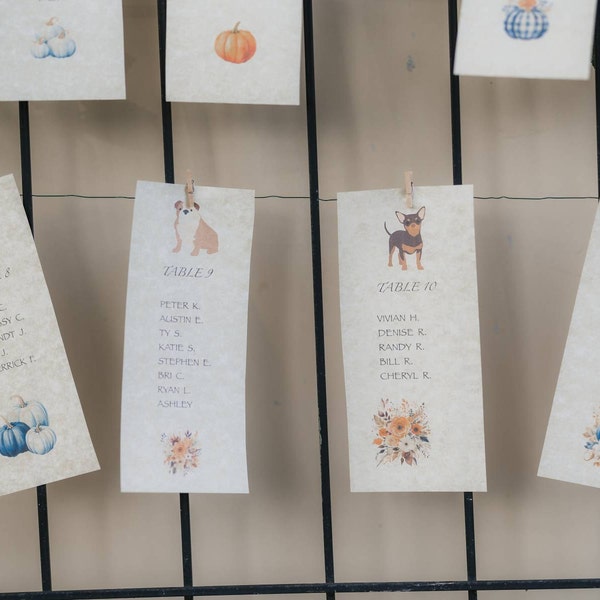 8
TABLE 9
PETER K.
AUSTIN E.
TY S.
KATIE S.
STEPHEN E.
BRI C.
RYAN L.
ASHLEY
TABLE 10
VIVIAN H.
DENISE R.
RANDY R.
BILL R.
CHERYL R.